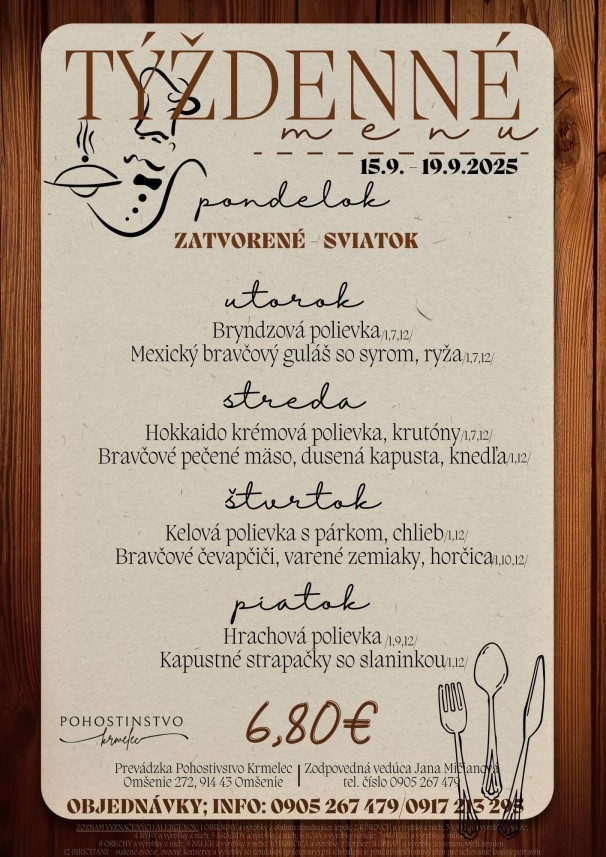 TÝŽDENNÉ
menu
15.9. - 19.9.2025
pondelok
ZATVORENÉ - SVIATOK
utorok
Bryndzová polievka/1,7,12/
Mexický bravčový guláš so syrom, ryža/1,7,12/
streda
Hokkaido krémová polievka, krutóny/1,7,12/
Bravčové pečené mäso, dusená kapusta, knedľa/1,12/
štvrtok
Kelová polievka s párkom, chlieb/1,12/
Bravčové čevapčiči, varené zemiaky, horčica/1,10,12/
piatok
Hrachová polievka /1,9,12/
Kapustné strapačky so slaninkou/1,12/
6,80€
POHOSTINSTVO
krmelec
Prevádzka Pohostivstvo Krmelec | Zodpovedná vedúca Jana Mičianová
Omšenie 272, 914 43 Omšenie | tel. číslo 0905 267 479
OBJEDNÁVKY; INFO: 0905 267 479/0917 213 295
ZOZNAM VYZNAČENÝCH ALERGÉNOV: 1 OBILNINY